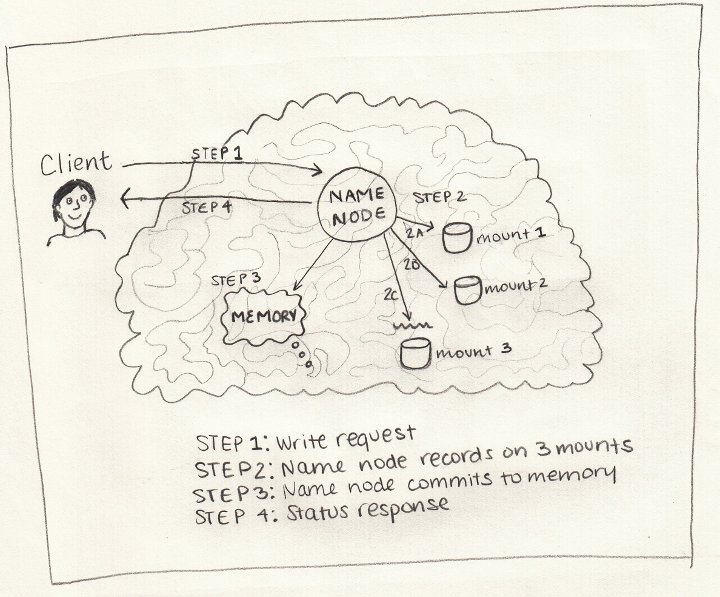 Client
STEP 1
STEP 4
NAME
NODE
STEP 2
2A
mount 1
2B
mount 2
2C
mount 3
STEP 3
MEMORY
STEP 1: Write request
STEP 2: Name node records on 3 mounts
STEP 3: Name node commits to memory
STEP 4: Status response